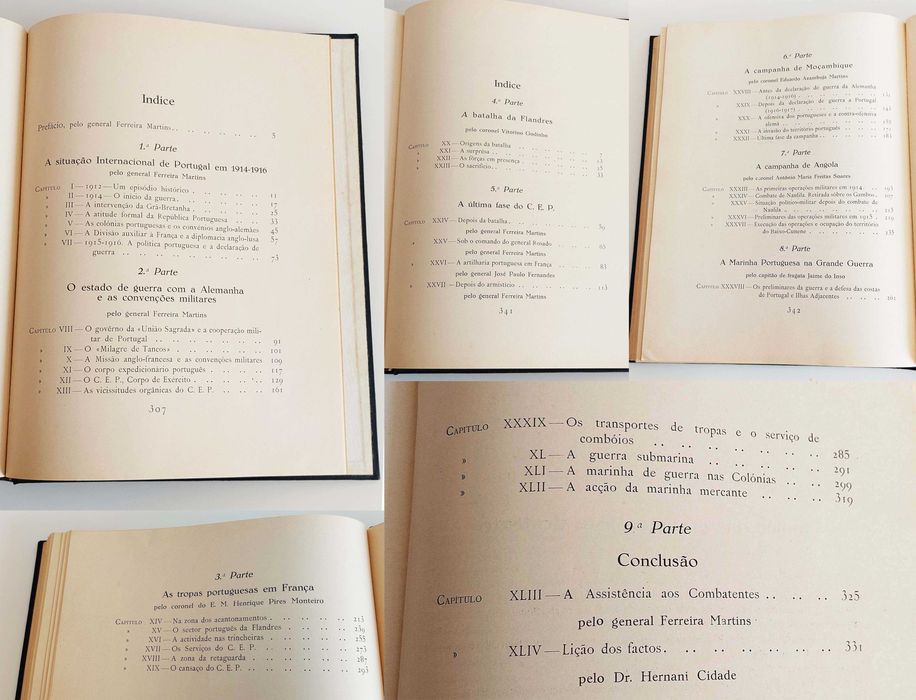 Indice
Prefácio, pelo general Ferreira Martins. . . . . . . . 5
1.ª Parte
A situação Internacional de Portugal em 1914-1916
pelo general Ferreira Martins
CAPITULO I — 1912 — Um episódio histórico . . . . . . 11
» II — 1914 — O início da guerra . . . . . . 17
» III — A intervenção da Grã-Bretanha . . . . . . 25
» IV — A atitude formal da República Portuguesa . . . . 33
» V — As colónias portuguesas e os convénios anglo-alemães 45
» VI — A Divisão auxiliar à França e a diplomacia anglo-lusa 57
» VII — 1915-1916. A política portuguesa e a declaração de
guerra . . . . . . . . . . 73
2.ª Parte
O estado de guerra com a Alemanha
e as convenções militares
pelo general Ferreira Martins
CAPITULO VIII — O govêrno da «União Sagrada» e a cooperação mili-
tar de Portugal . . . . . . . . 91
» IX — O «Milagre de Tancos» . . . . . . . 101
» X — A Missão anglo-francesa e as convenções militares 109
» XI — O corpo expedicionário português . . . . . 117
» XII — O C. E. P., Corpo de Exército . . . . . . 129
» XIII — As vicissitudes orgânicas do C. E. P. . . . . . 161
307
Indice
4.ª Parte
A batalha da Flandres
pelo coronel Vitorino Godinho
CAPITULO XX — Origens da batalha . . . . . .
» XXI — A surprêsa . . . . . . .
» XXII — As fôrças em presença . . . . . 15
» XXIII — O sacrifício . . . . . . . 33
5.ª Parte
A última fase do C. E. P.
CAPITULO XXIV — Depois da batalha . . . . . . 59
pelo general Ferreira Martins
» XXV — Sob o comando do general Rosado . . . . 65
pelo general Ferreira Martins
» XXVI — A artilharia portuguesa em França . . . . 83
pelo general José Paulo Fernandes
» XXVII — Depois do armistício . . . . . . 113
pelo general Ferreira Martins
341
6.ª Parte
A campanha de Moçambique
pelo coronel Eduardo Azambuja Martins
CAPITULO XXVIII — Antes da declaração de guerra da Alemanha
(1914-1916) . . . . . . . 131
» XXIX — Depois da declaração de guerra a Portugal
(1916-1917) . . . . . . .
» XXX — A ofensiva dos portugueses e a contra-ofensiva
alemã . . . . . . . .
» XXXI — A invasão do território português . . . . 171
» XXXII — Última fase da campanha . . . . . . 183
7.ª Parte
A campanha de Angola
pelo coronel António Maria Freitas Soares
CAPITULO XXXIII — As primeiras operações militares em 1914 . . 193
» XXXIV — Combate de Naulila. Retirada sôbre os Gambos. 207
» XXXV — Situação político-militar depois do combate de
Naulila . . . . . . . . 213
» XXXVI — Preliminares das operações militares em 1915 . 219
» XXXVII — Execução de operações e ocupação do território
do Baixo-Cunene . . . . . . 235
8.ª Parte
A Marinha Portuguesa na Grande Guerra
pelo capitão de fragata Jaime do Inso
CAPITULO XXXVIII — Os preliminares da guerra e a defesa das costas
de Portugal e Ilhas Adjacentes . . . . 261
342
3.ª Parte
As tropas portuguesas em França
pelo coronel do E. M. Henrique Pires Monteiro
CAPITULO XIV — Na zona dos acantonamentos . . . . . . 213
» XV — O sector português da Flandres . . . . . 239
» XVI — A actividade nas trincheiras . . . . . . 255
» XVII — Os Serviços do C. E. P. . . . . . . 273
» XVIII — A zona da retaguarda . . . . . . . 287
» XIX — O cansaço do C. E. P. . . . . . . . 293
CAPITULO XXXIX — Os transportes de tropas e o serviço de
combóios . . . . . . . . 285
» XL — A guerra submarina . . . . . . 291
» XLI — A marinha de guerra nas Colónias . . . . 299
» XLII — A acção da marinha mercante . . . . 319
9.ª Parte
Conclusão
CAPITULO XLIII — A Assistência aos Combatentes . . . . 325
pelo general Ferreira Martins
» XLIV — Lição dos factos . . . . . . . 331
pelo Dr. Hernani Cidade